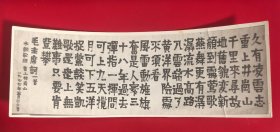 久有凌雲志
重上井岡山
千里來尋故
地舊貌變新
顏到處鶯歌
燕舞更有潺
潺流水高路
入雲端過了
黃洋界險處
不須看
風雷動旌旗
奮是人寰三
十八年過去
彈指一揮間
可上九天攬
月可下五洋
捉鱉談笑凱
歌還世上無
難事只要肯
登攀
毛主席詞一首
水調歌頭 重上井岡山